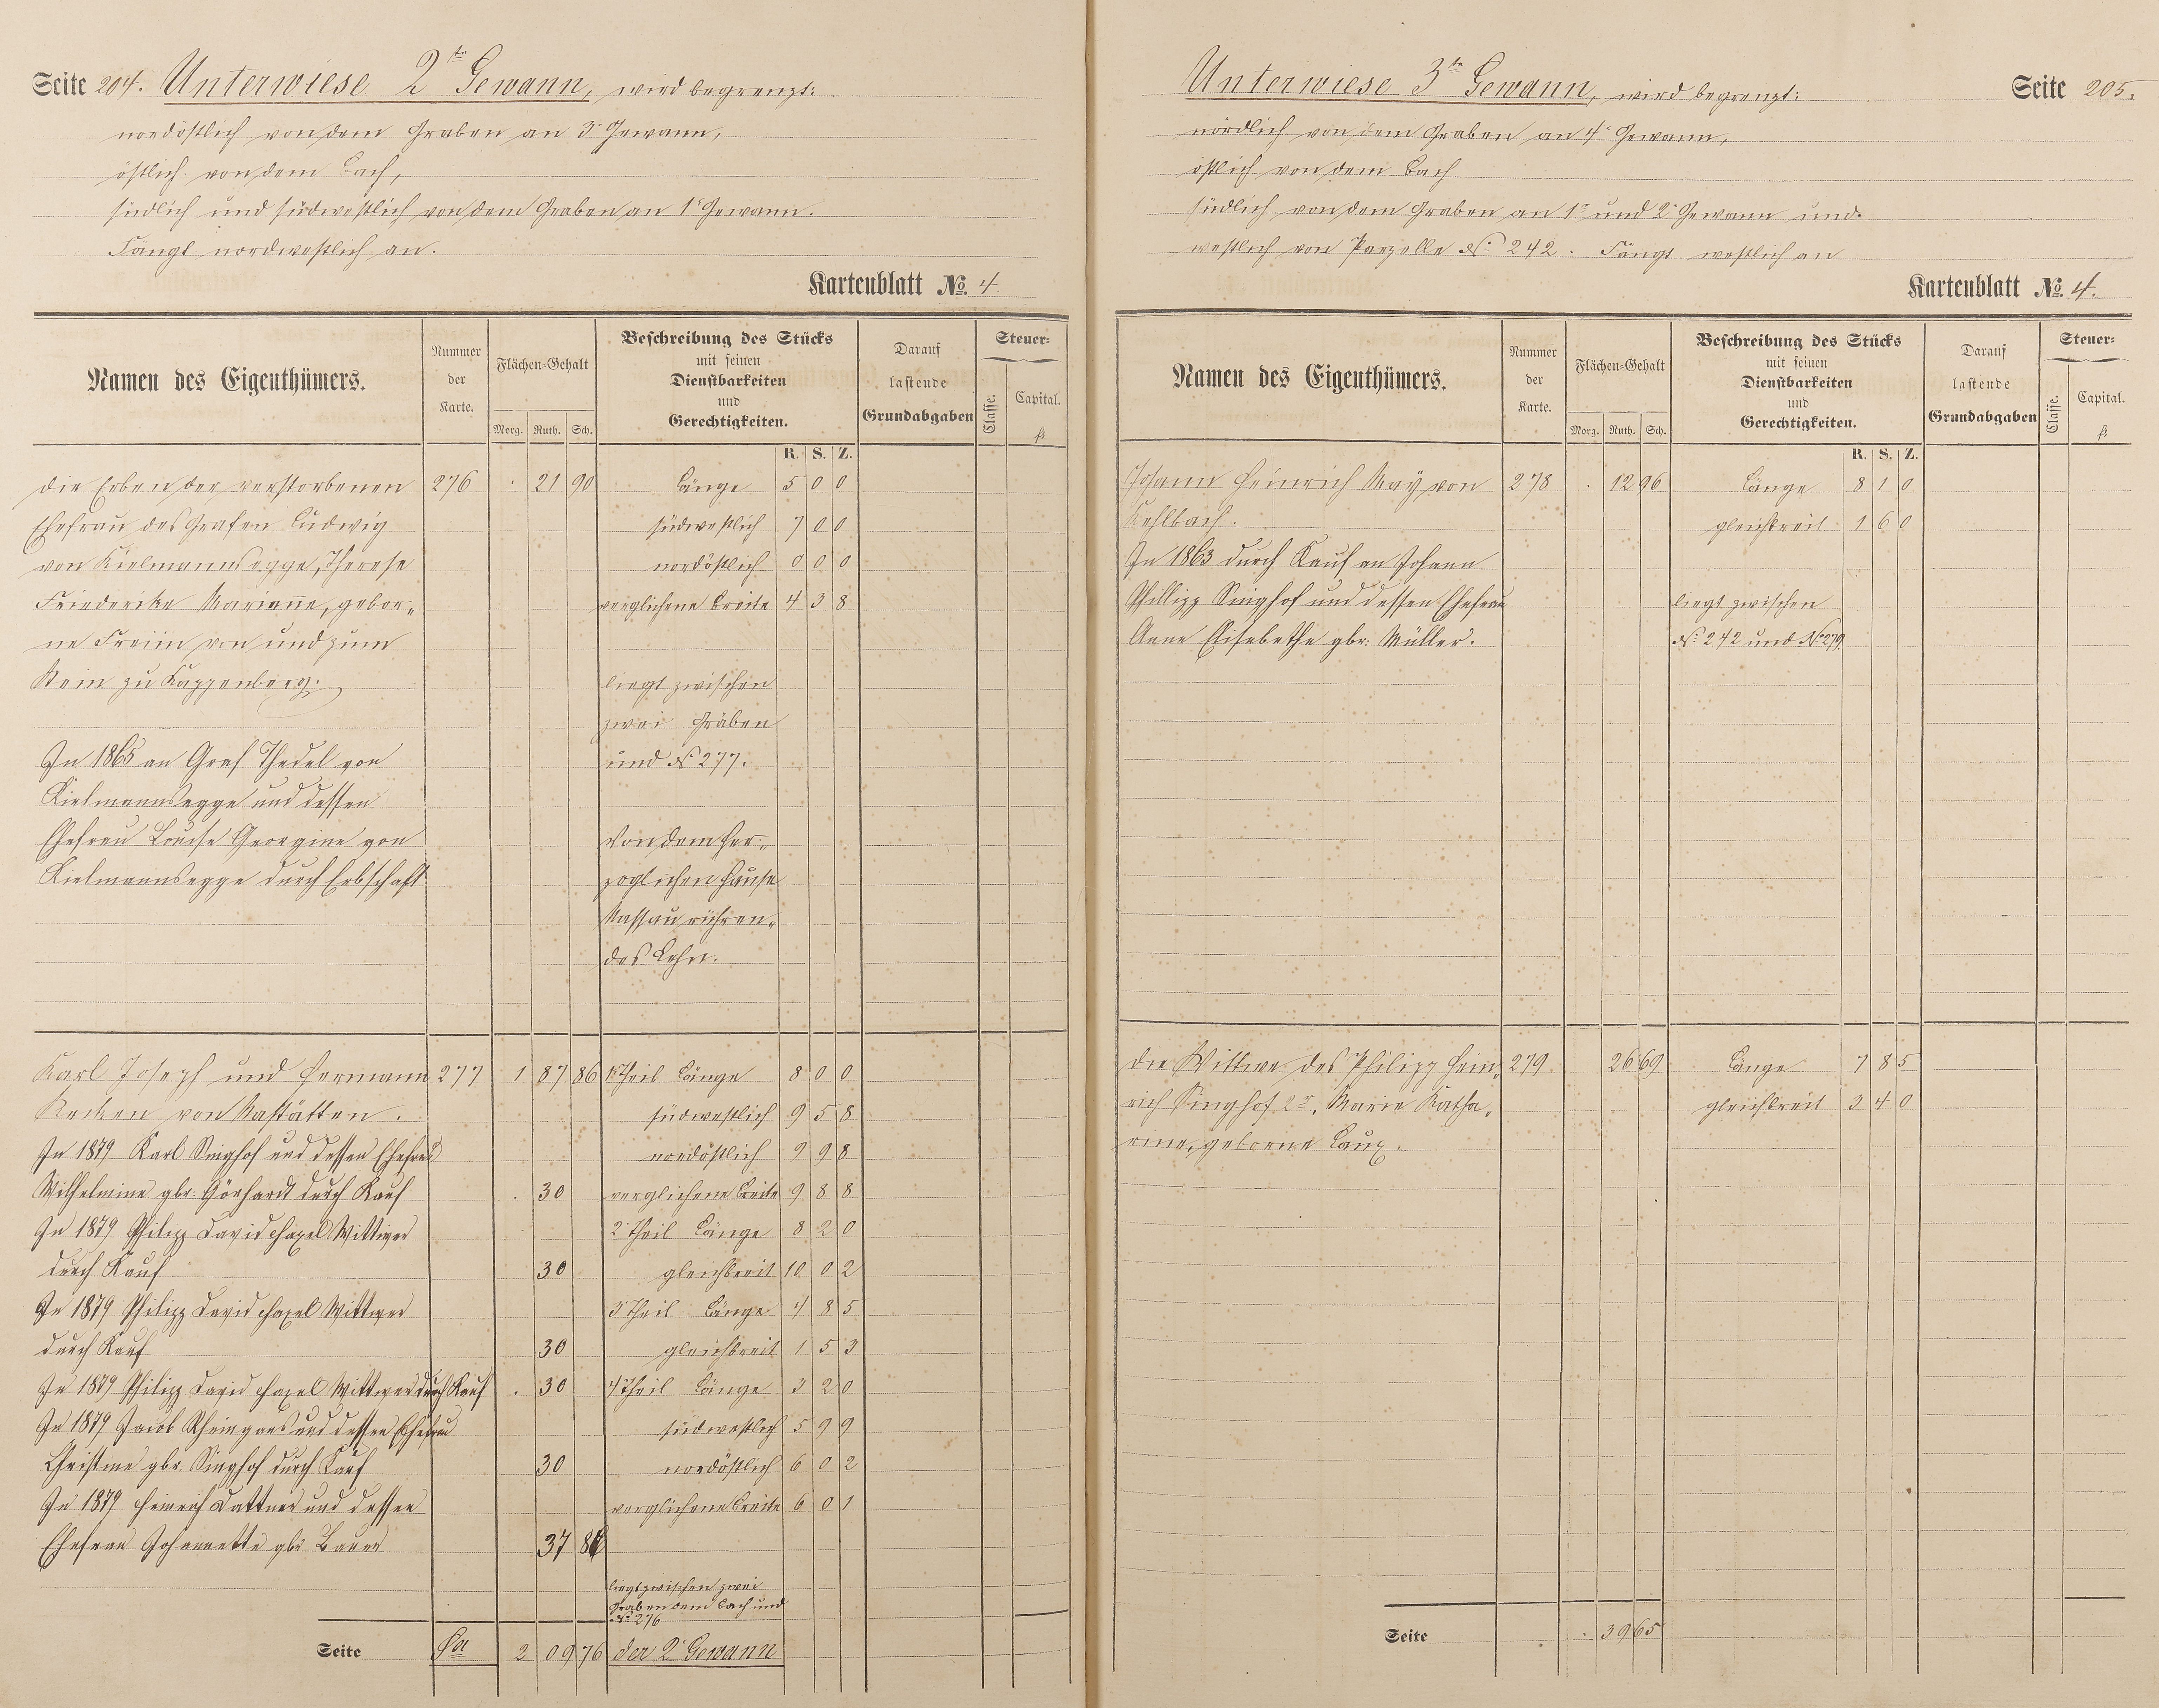 Seite 204. Unterwiese 2te Gewann, wird begrenzt:
nordöstlich von dem Graben an 3r Gewann,
östlich von dem Bach,
südlich und südwestlich von dem Graben an 1r Gewann.
Fängt nordwestlich an.
Kartenblatt No. 4
Namen des Eigenthümers.
Nummer der Karte.
Flächen-Gehalt
Morg. Ruth. Sch.
Beschreibung des Stücks
mit seinen
Dienstbarkeiten
und
Gerechtigkeiten.
Darauf
lastende
Grundabgaben
Steuer-
Classe. Capital.
fl
R. S. Z.
die Erben der verstorbenen 276 . 21 90 Länge 5 0 0
Ehefrau des Grafen Ludwig südwestlich 7 0 0
von Kielmannsegge, Therese nordöstlich 0 0 0
Friederike Marianne, gebor- verglichene Breite 4 3 8
ne Freiin von und zum
Stein zu Kappenberg. liegt zwischen
zwei Gräben
In 1865 an Graf Thedel von und No 277.
Kielmannsegge und dessen
Ehefrau Louise Georgine von Von dem Her-
Kielmannsegge durch Erbschaft zoglichen Hause
Nassau rühren-
des Lehn.
Karl Joseph und Hermann 277 1 87 86 1r Theil Länge 8 0 0
von Nastätten. südwestlich 9 5 8
In 1879 Karl Singhof und dessen Ehefrau nordöstlich 9 9 8
Wilhelmine gbr. durch Kauf . 30 verglichene Breite 9 8 8
In 1879 Philipp David Wittwer 2r Theil Länge 8 2 0
durch Kauf 30 gleichbreit 10 0 2
In 1879 Philipp David Wittwer 3r Theil Länge 4 8 5
durch Kauf 30 gleichbreit 1 5 3
In 1879 Philipp David Wittwer durch Kauf . 30 4r Theil Länge 3 2 0
In 1879 Jacob Rheingans und dessen Ehefrau südwestlich 5 9 9
Christine gbr. Singhof durch Kauf 30 nordöstlich 6 0 2
In 1879 Heinrich Lattner und dessen verglichene Breite 6 0 1
Ehefrau Johannette gbr Bauer 37 86
liegt zwischen zwei
Graben dem Bach und
No 276
Seite Sa 2 09 76 der 2r Gewann
Unterwiese 3te Gewann, wird begrenzt: Seite 205.
nördlich von dem Graben an 4r Gewann,
östlich von dem Bach
südlich von dem Graben an 1r und 2r Gewann und
westlich von Parzelle No 242. Fängt westlich an
Kartenblatt No. 4.
Namen des Eigenthümers.
Nummer der Karte.
Flächen-Gehalt
Morg. Ruth. Sch.
Beschreibung des Stücks
mit seinen
Dienstbarkeiten
und
Gerechtigkeiten.
Darauf
lastende
Grundabgaben
Steuer-
Classe. Capital.
fl
R. S. Z.
Johann Heinrich May von 278 . 12 96 Länge 8 1 0
Kehlbach. gleichbreit 1 6 0
In 1863 durch Kauf an Johann
Phillipp Singhof und dessen Ehefrau liegt zwischen
Anne Elisabethe gbr. Müller. No 242 und No 279
die Wittwe des Philipp Hein- 279 26 69 Länge 7 8 5
rich Singhof 2r, Marie Katha- gleichbreit 3 4 0
rine, geborne Laux.
Seite . 39 65